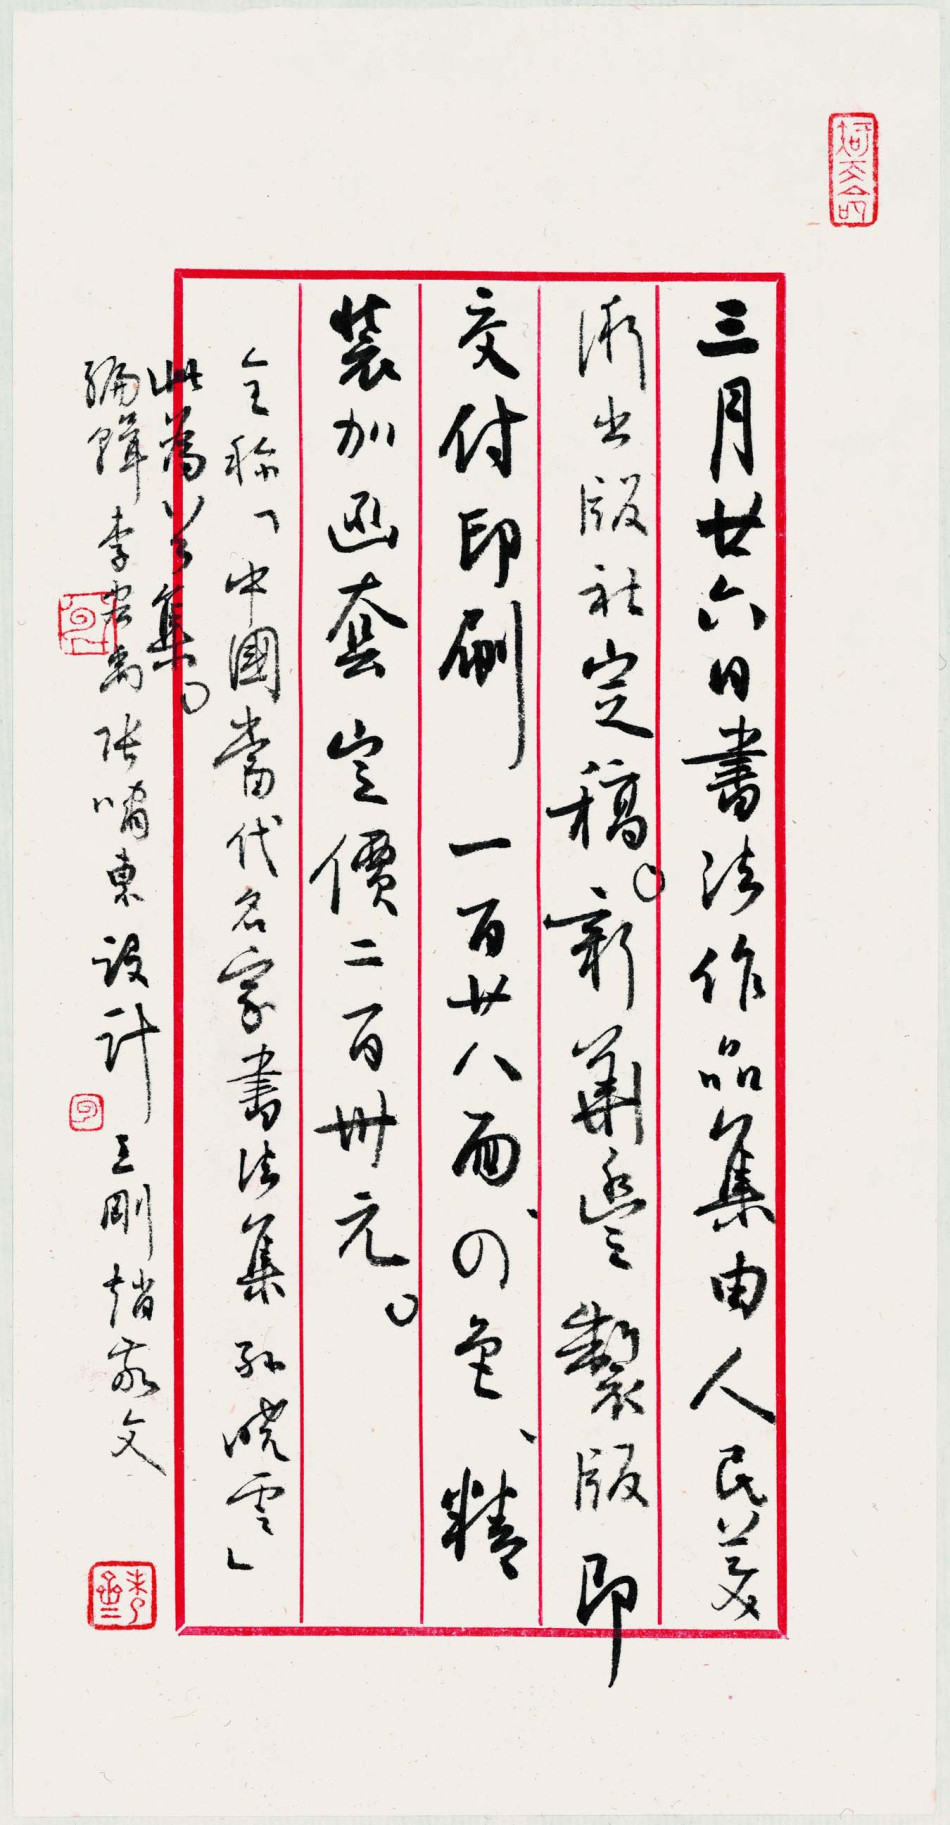 三月廿六日書法作品集由人民美
術出版社定稿。新華豐製版即
交付印刷 一百廿八面、四色、精
裝加函套 定價二百卅元。
全称「中國當代名家書法集 孙晓雲」
此為首集。
編輯 李宏禹 张啸東 設計 王剛 趙家文